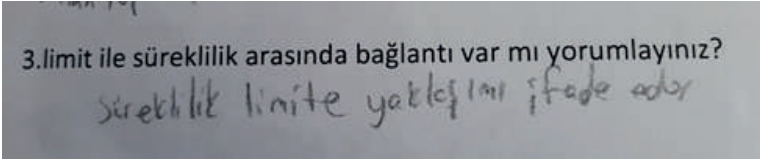 3.limit ile süreklilik arasında bağlantı var mı yorumlayınız?
Süreklilik limite yaklaşımı ifade eder